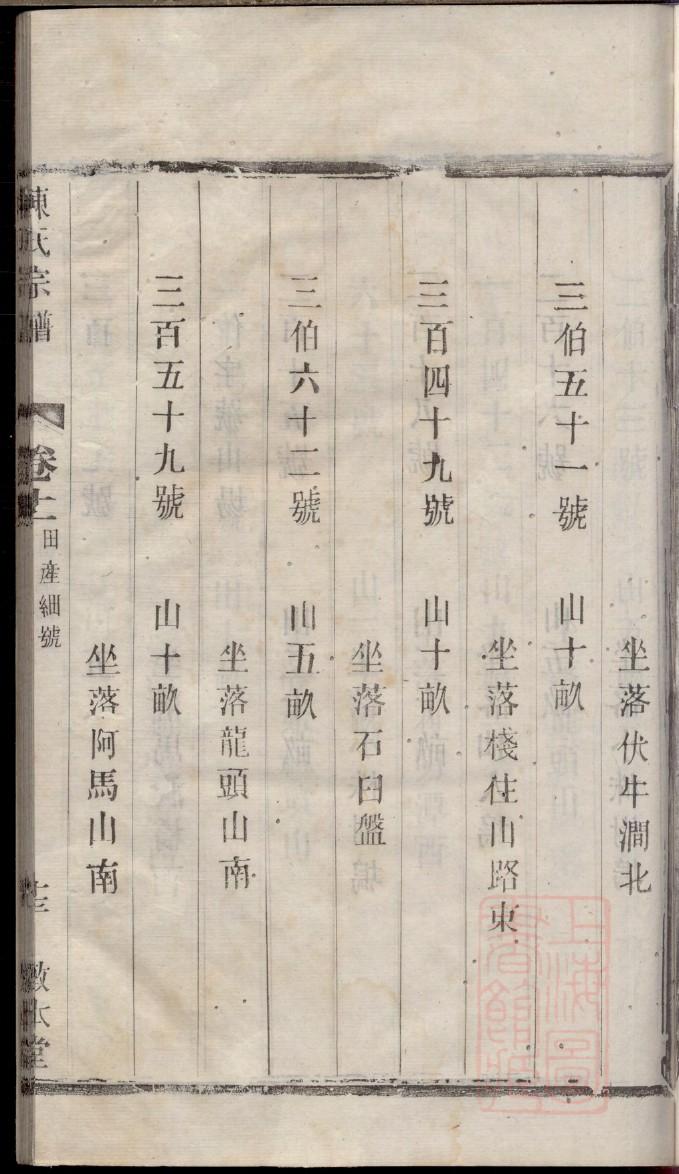 坐落伏牛澗北
三伯五十一號　山十畝
坐落棧住山路東
三百四十九號　山十畝
坐落石臼盤
三伯六十二號　山五畝
坐落龍頭山南
三百五十九號　山十畝
坐落阿馬山南
陳氏宗譜　卷十二　田產細號　敬本堂
上海圖書館藏